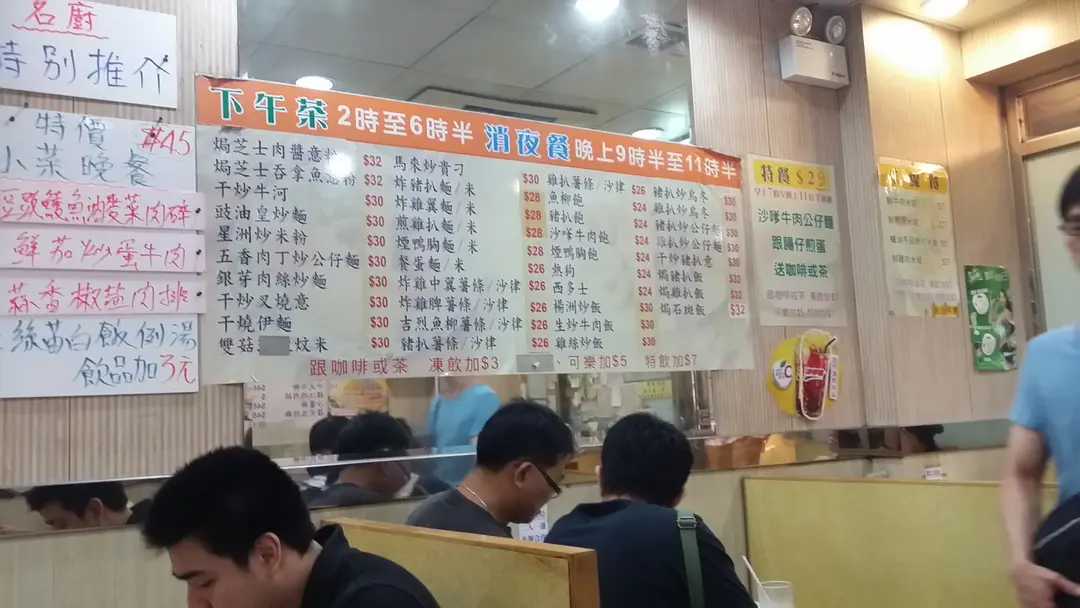 名廚
特別推介
特價 $45
小菜晚餐
豆豉鯪魚油麥菜肉碎
鮮茄炒蛋牛肉
蒜香椒鹽肉排
絲苗白飯例湯
飲品加3元
下午茶 2時至6時半 消夜餐 晚上9時半至11時半
焗芝士肉醬意粉 $32
焗芝士吞拿魚意粉 $32
干炒牛河 $30
豉油皇炒麵 $30
星洲炒米粉 $30
五香肉丁炒公仔麵 $30
銀芽肉絲炒麵 $30
干炒叉燒意 $30
干燒伊麵 $30
雙菇 炆米 $30
馬來炒貴刁 $30
炸豬扒麵/米 $28
炸雞翼麵/米 $28
煎雞扒麵/米 $28
煙鴨胸麵/米 $28
餐蛋麵/米 $26
炸雞中翼薯條/沙律 $26
炸雞脾薯條/沙律 $26
吉烈魚柳薯條/沙律 $26
豬扒薯條/沙律 $26
雞扒薯條/沙律 $26
魚柳飽 $24
豬扒飽 $24
沙嗲牛肉飽 $24
煙鴨胸飽 $24
熱狗 $24
西多士 $26
楊洲炒飯 $30
生炒牛肉飯 $30
雞絲炒飯 $30
豬扒炒烏冬 $30
雞扒炒烏冬 $30
豬扒炒公仔麵 $30
雞扒炒公仔麵 $30
干炒豬扒意 $30
焗豬扒飯 $32
焗雞扒飯 $32
焗石斑飯 $32
跟咖啡或茶 凍飲加$3 、可樂加$5 特飲加$7
特餐 $29
沙嗲牛肉公仔麵
跟腸仔煎蛋
送咖啡或茶